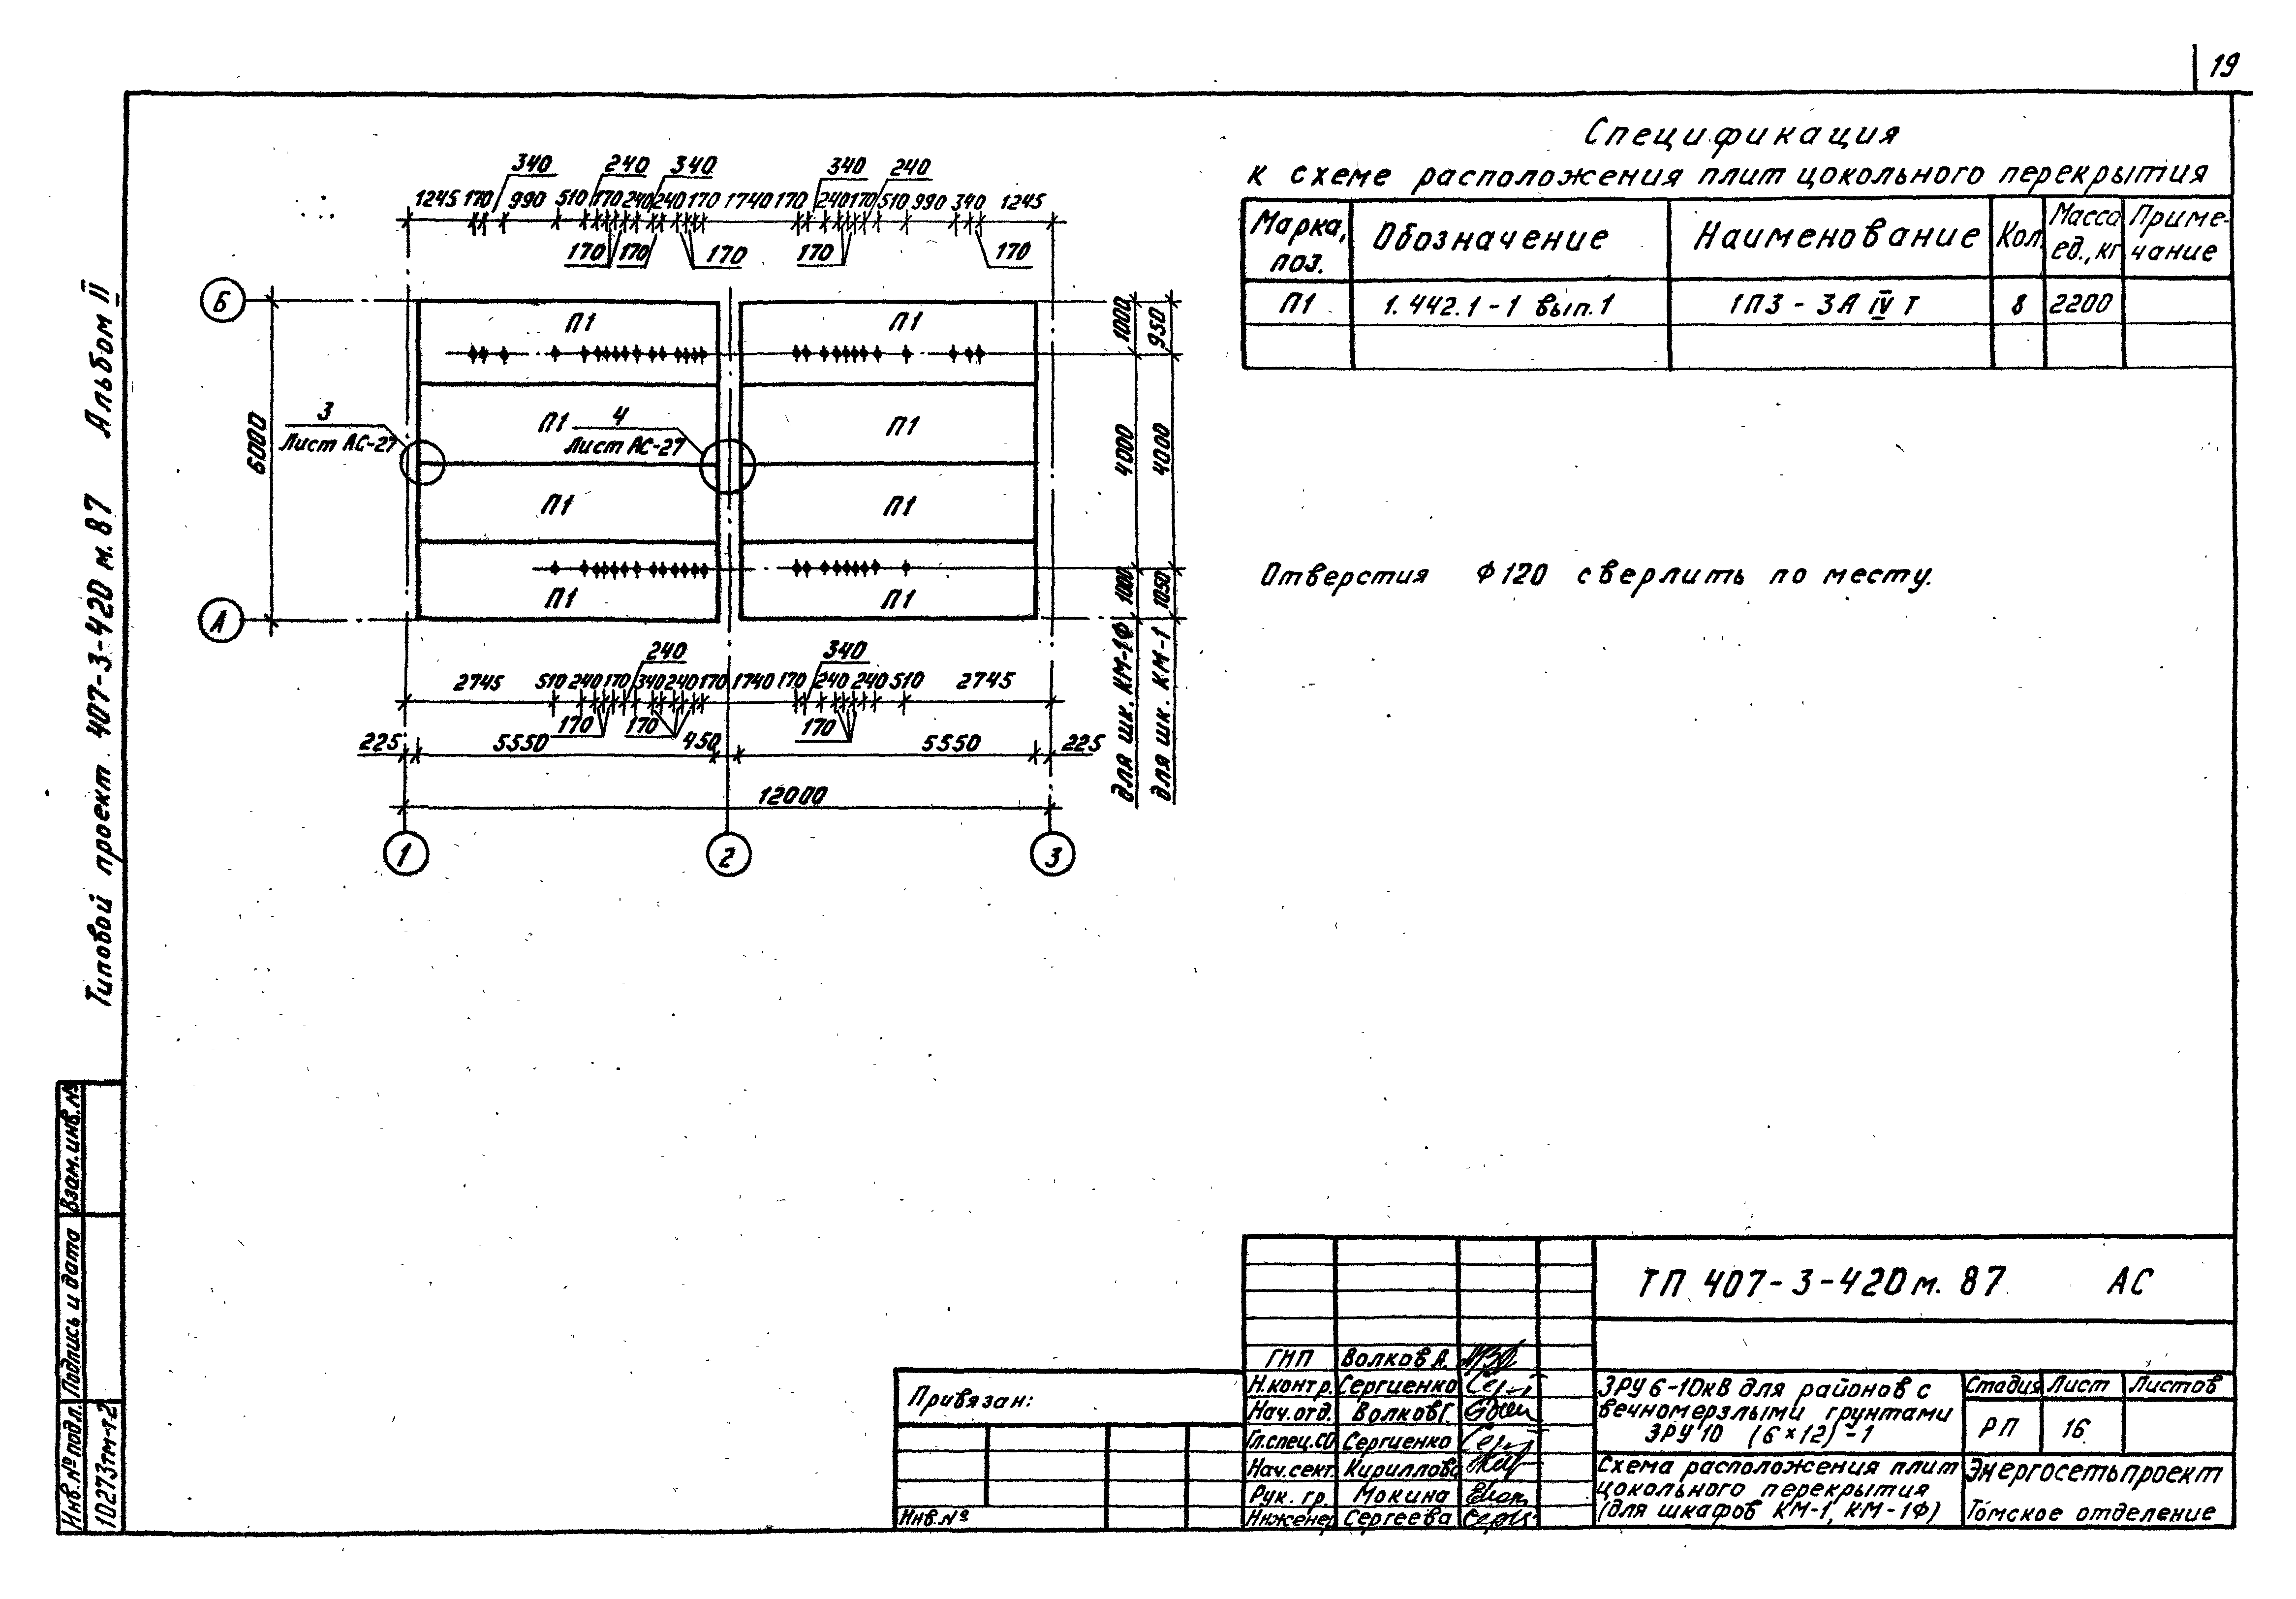 19
Спецификация
к схеме расположения плит цокольного перекрытия
Марка, поз. Обозначение Наименование Кол. Масса ед., кг Примечание
П1 1.442.1-1 вып.1 1П3-3А IV Т 8 2200
Отверстия Ф120 сверлить по месту.
340 240 340 340 240
1245 170 990 510 170 240 240 170 1740 170 240 170 510 990 340 1245
170 170 170 170 170
Б
П1 П1
1000 950
3
Лист АС-27
П1 4
Лист АС-27
П1
6000
4000 4000
П1 П1
П1 П1
1000 1050
А
для шк. КМ-1Ф
для шк. КМ-1
240 340
2745 510 240 170 340 240 170 1740 170 240 240 510 2745
170 170 170
225 5550 450 5550 225
12000
1 2 3
Типовой проект 407-3-420 м.87 Альбом II
Взам.инв.№
Подпись и дата
Инв.№ подл.
10273тм-т2
Привязан:
Инв.№
ТП 407-3-420м.87 АС
ГИП Волков А.
Н.контр. Сергиенко
Нач.отд. Волков Г.
Гл.спец.СО Сергиенко
Нач.сект. Кириллова
Рук. гр. Мокина
Инженер Сергеева
ЗРУ 6-10кВ для районов с
вечномерзлыми грунтами
ЗРУ 10 (6×12)-1
Стадия Лист Листов
РП 16
Схема расположения плит
цокольного перекрытия
(для шкафов КМ-1, КМ-1Ф)
Энергосетьпроект
Томское отделение